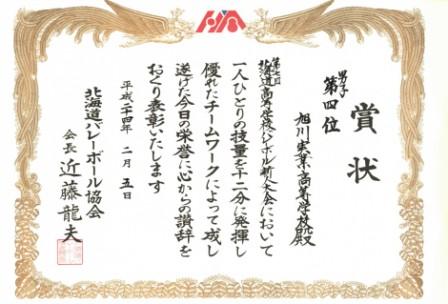 賞状
男子
第四位
旭川実業高等学校殿
北海道高等学校バレーボール新人大会において
一人ひとりの技量を十二分に発揮し
優れたチームワークによって成し
遂げた今日の栄誉に心からの讃辞を
おくり表彰いたします
平成二十四年 二月 五日
北海道バレーボール協会
会長 近藤龍夫